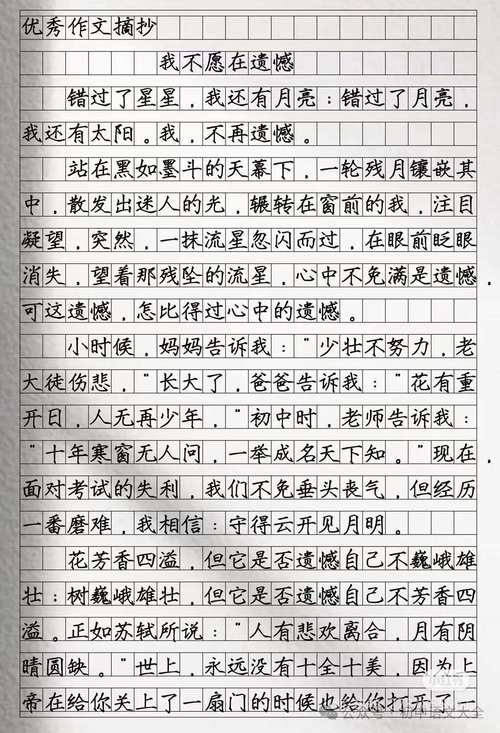 优秀作文摘抄
我不愿在遗憾
错过了星星，我还有月亮：错过了月亮，
我还有太阳。我，不再遗憾。
站在黑如墨斗的天幕下，一轮残月镶嵌其
中，散发出迷人的光，辗转在窗前的我，注目
凝望，突然，一抹流星忽闪而过，在眼前眨眼
消失，望着那残坠的流星，心中不免满是遗憾，
可这遗憾，怎比得过心中的遗憾。
小时候，妈妈告诉我：“少壮不努力，老
大徒伤悲，”长大了，爸爸告诉我：“花有重
开日，人无再少年，”初中时，老师告诉我：
“十年寒窗无人问，一举成名天下知。”现在，
面对考试的失利，我们不免垂头丧气，但经历
一番磨难，我相信：守得云开见月明。
花芳香四溢，但它是否遗憾自己不巍峨雄
壮：树巍峨雄壮，但它是否遗憾自己不芳香四
溢。正如苏轼所说：“人有悲欢离合，月有阴
晴圆缺。”世上，永远没有十全十美，因为上
帝在给你关上了一扇门的时候也给你打开了一
小红书
公众号·初中语文大全